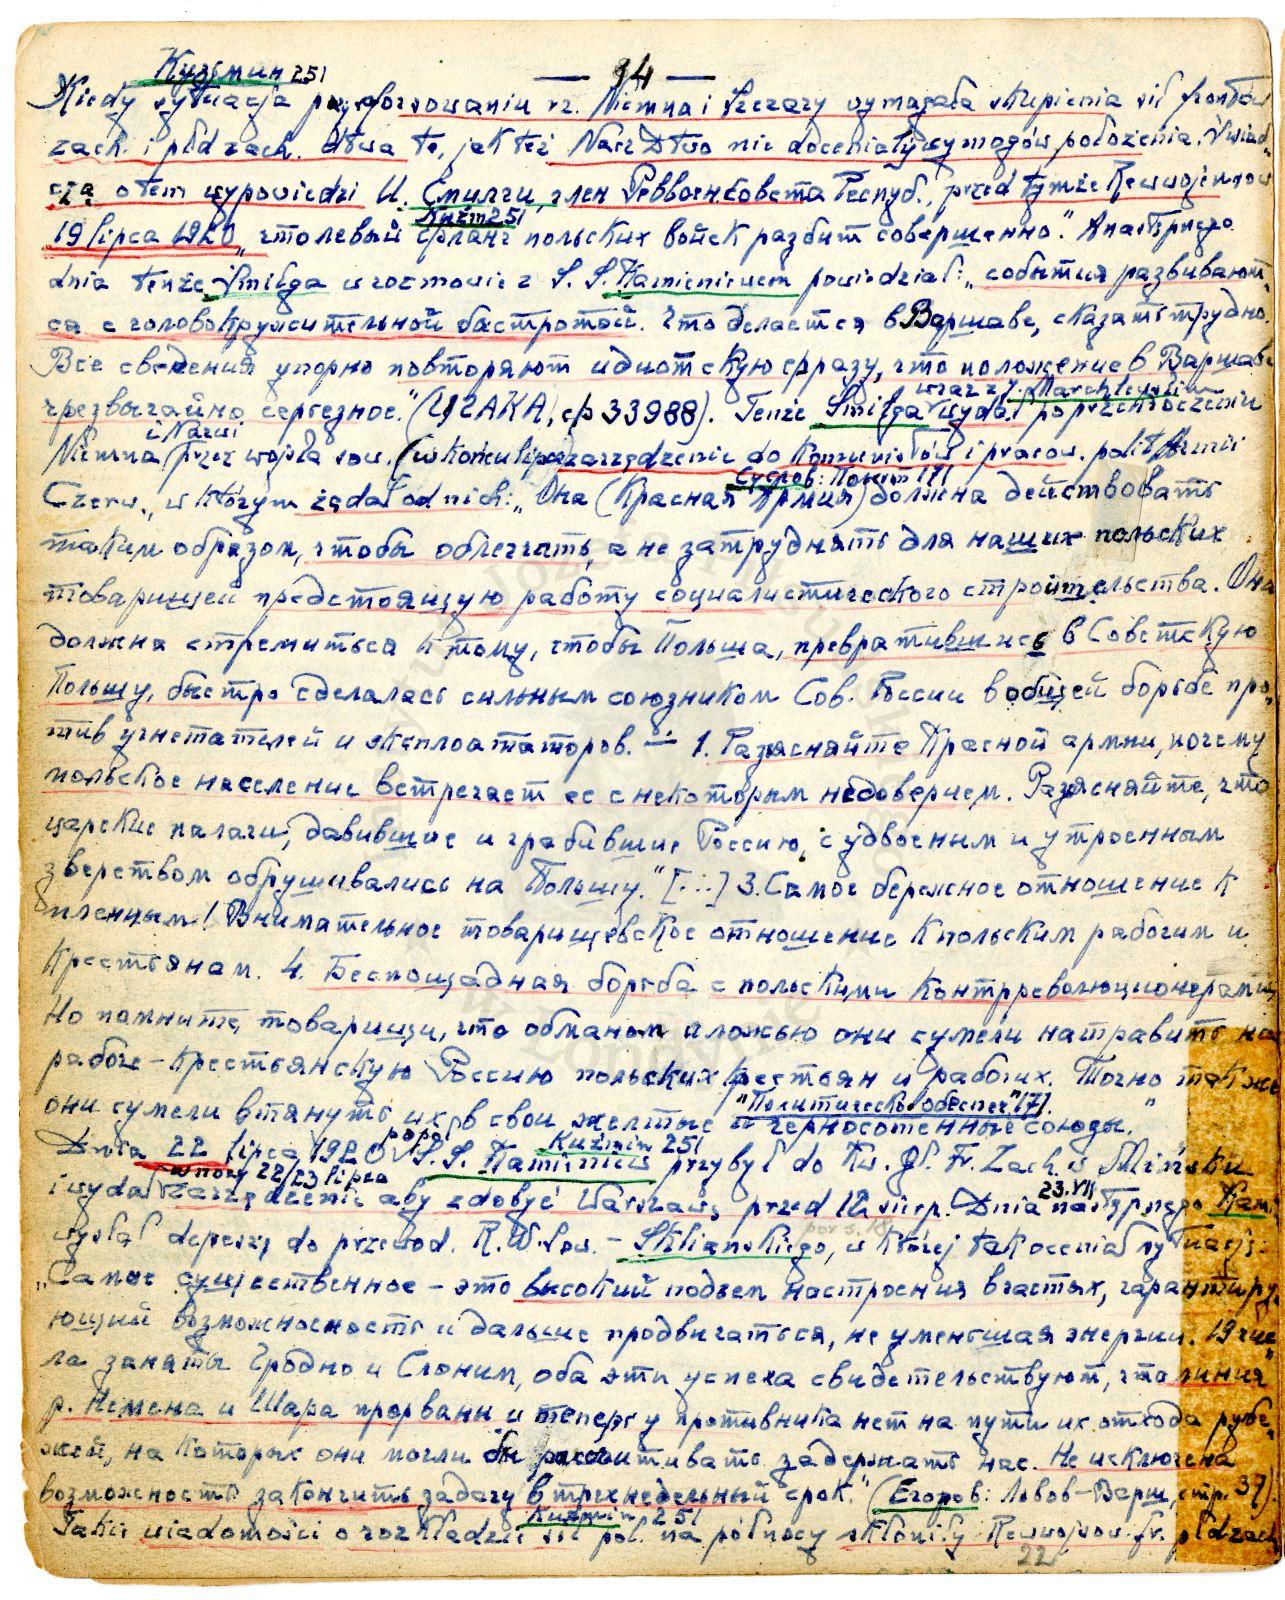 Кузьмин 251
— 14 —
Kiedy sytuacja przy forsowaniu rz. Niemna i Szczary wymagała skupienia sił frontów
zach. i płd zach. dtwa te, jak też Nacz Dtwo nie doceniały wymogów położenia. Świad„
czą o tem wypowiedzi И. Смилги, член Реввоенсовета Респуб., przed tymże
Kuźm 251
19 lipca 1920 „что левый фланг польских войск разбит совершенно". A następnego
dnia tenże Smilga w rozmowie z S. S. Kamieniewem powiedział: „события развивают„
ся с головокружительной быстротой. Что делается в Варшаве, сказать трудно.
Все сведения упорно повторяют идиотскую фразу, что положение в Варшаве
wraz z J. Marchlewskim
чрезвычайно серьезное." (ЦГАКА, 33988). Tenże Smilga wydał po przekroczeniu
i Narwi
Niemna przez wojska sow. (w końcu lipca) zarządzenie do komunistów i pracow. polit Armii
Суслов: Полит 171
Czerw., w którym żądał od nich: „Она (Красная Армия) должна действовать
таким образом, чтобы облегчать, а не затруднять для наших польских
товарищей предстоящую работу социалистического строительства. Она
должна стремиться к тому, чтобы Польша, превратившись в Советскую
Польшу, быстро сделалась сильным союзником Сов. России в общей борьбе про„
тив угнетателей и эксплоататоров. — 1. Разясняйте Красной армии, почему
польское население встречает ее с некоторым недоверием. Разясняйте, что
царские палачи, давившие и грабившие Россию, с удвоенным и утроенным
зверством обрушивались на Польшу." [...] 3. Самое бережное отношение к
пленным! Внимательное товарищевское отношение к польским рабочим и
крестьянам. 4. Беспощадная борьба с польскими контрреволюционерами.
Но помните, товарищи, что обманом и ложью они сумели натравить на
рабоче-крестьянскую Россию польских крестьян и рабочих. Точно так же
"Политическое обеспеч" 171.
они сумели втянуть их в свои желтые и черносотенные союзы."
popoł Kuźmin 251
Dnia 22 lipca 1920 S. S. Kamieniew przybył do Kw. Gł. Fr. Zach. w Mińsku
w nocy 22/23 lipca 23.VII
i wydał zarządzenie aby zdobyć Warszawę przed 12 sierp. Dnia następnego Kam.
por s. 18
wysłał depeszę do przewod. R.W.Sow. — Sklianskiego, w której tak oceniał sytuację:
„Самое существенное – это высокий подъем настроения в частях, гарантиру„
ющий возможность и дальше продвигаться, не уменьшая энергии. 19 чис„
ла заняты Гродно и Слоним, оба эти успеха свидетельствуют, что линия
р. Немена и Шара прорваны и теперь у противника нет на пути их отхода рубе„
жей, на которых они могли бы расчитивать задержать нас. Не исключена
возможность закончить задачу в трехнедельный срок." (Егоров: Львов–Варш, стр. 37).
Kuźmin 251
Takie wiadomości o rozkładzie sił pol. na północy skłoniły Rewwojsow. fr. płdzach
22